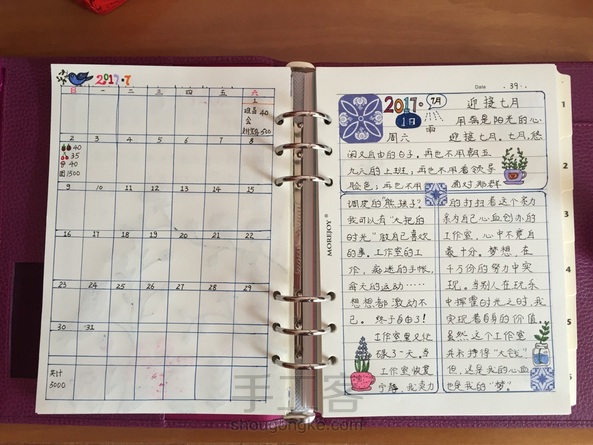 2017·7
日 一 二 三 四 五 六
1
40
500
2 3 4 5 6 7 8
40
35
40
1500
9 10 11 12 13 14 15
16 17 18 19 20 21 22
23 24 25 26 27 28 29
30 31
共计
5000
MOREJOY
Date · 39 ·
2017· 7月 迎接七月
1日 用满是阳光的心
周六 迎接七月。七月,悠
闲又自由的日子,再也不用朝五
九的上班;再也不用看领导
脸色;再也不用 面对那群
调皮的熊孩子?
我可以有“大把的
时光”做自己喜欢
的事。工作室的工
作,
每天的运动……
想想都激动不
已。终于自由了!
工作室里又忙
碌了一天,当
工作室恢复
宁静,我卖力
的打扫着这个卖力
亲为自己心血创办的
工作室,心中不免自
豪十分。梦想,在
千万份的努力中实
现。当别人在玩乐
中挥霍时光之时,我
实现着自身的价值
虽然这个工作室
并未挣得“大钱”
但,这是我的心血
也是我的“梦”。
1
2
3
4
5
手工客
shougongke.com